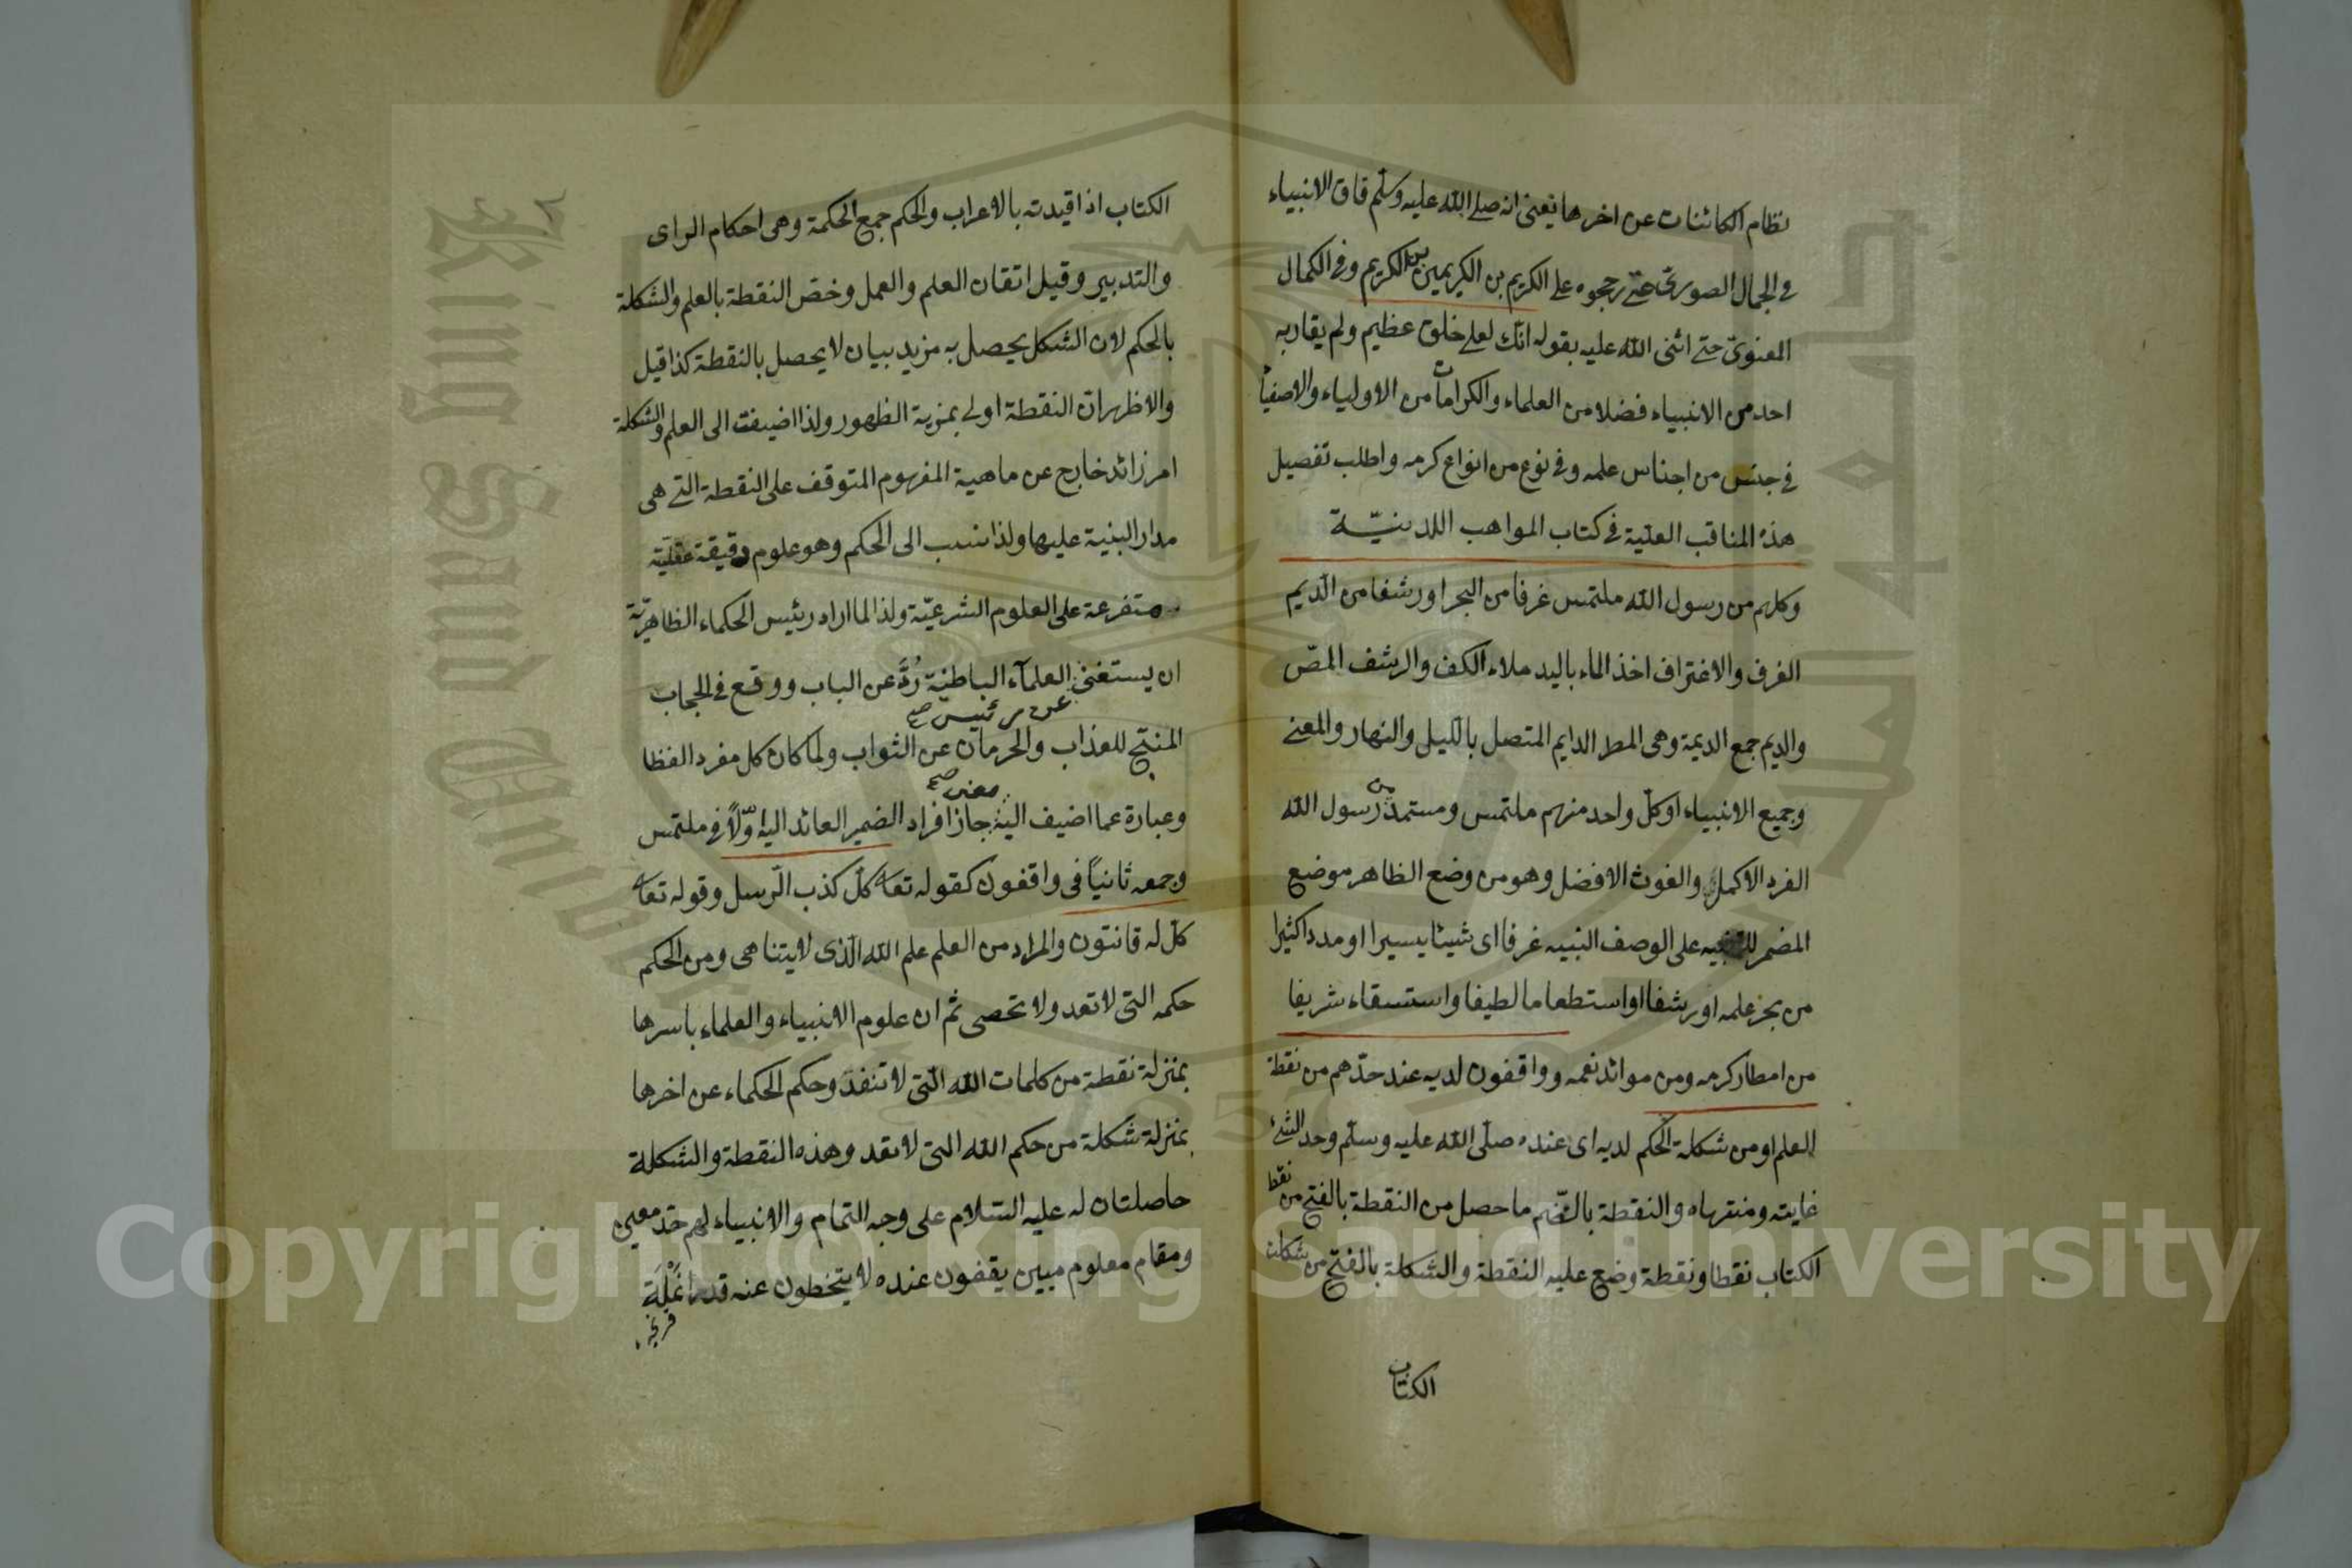 نظام الكائنات عن اخرها يعنى انه صلى الله عليه وسلم فاق الانبياء
فى الجمال الصورىّ حتى رجحوه على الكريم بن الكريمين بن الكريم وفى الكمال
المعنوىّ حتى اثنى الله عليه بقوله انك لعلى خلق عظيم ولم يقاربه
احد من الانبياء فضلا من العلماء والكرامات من الاولياء والاصفيا
فى جنس من اجناس علمه وفى نوع من انواع كرمه واطلب تفصيل
هذه المناقب العليّة فى كتاب المواهب اللدنيّة
وكلهم من رسول الله ملتمس غرفا من البحر اورشفا من الديم
الغرف والاغتراف اخذ الماء باليد ملاء الكف والرشف المصّ
والديم جمع الديمة وهى المطر الدايم المتصل بالليل والنهار والمعنى
وجميع الانبياء اوكلّ واحد منهم ملتمس ومستمد من رسول الله
الفرد الاكمل والغوث الافضل وهو من وضع الظاهر موضع
المضمر للتنبيه على الوصف النبيه غرفا اى شيئا يسيرا او مددا كثيرا
من بحر علمه اورشفا اواستطعاما لطيفا واستسقاء شريفا
من امطار كرمه ومن موائد نعمه وواقفون لديه عند حدّهم من نقطة
العلم اومن شكلة الحكم لديه اى عنده صلّى الله عليه وسلّم وحد الشئ
غايته ومنتهاه والنقطة بالضّم ما حصل من النقطة بالفتح من نقط
الكتاب نقطا ونقطة وضع عليه النقطة والشكلة بالفتح من شكلت
الكتاب
الكتاب اذا قيدته بالاعراب والحكم جمع الحكمة وهى احكام الراى
والتدبير وقيل اتقان العلم والعمل وخصّ النقطة بالعلم والشكلة
بالحكم لان الشكل يحصل به مزيد بيان لا يحصل بالنقطة كذا قيل
والاظهر ان النقطة اولى بمزية الظهور ولذا اضيفت الى العلم والشكلة
امر زائد خارج عن ماهية المفهوم المتوقف على النقطة التى هى
مدار البنية عليها ولذا نسب الى الحكم وهو علوم دقيقة عقليّة
متفرعة على العلوم الشرعيّة ولذا لما اراد رئيس الحكماء الظاهريّة
ان يستغنى العلمآء الباطنيّة رُدَّ عن الباب ووقع فى الحجاب
عن رئيس صح
المنتج للعذاب والحرمان عن الثواب ولمّا كان كل مفرد الفظا
معنى صح
وعبارة عما اضيف اليه جاز افراد الضمير العائد اليه اوّلاً فى ملتمس
وجمعه ثانياً فى واقفون كقوله تعا كلّ كذب الرّسل وقوله تعا
كلّ له قانتون والمراد من العلم علم الله الّذى لا يتناهى ومن الحكم
حكمه التى لا تعد ولا تحصى ثمّ ان علوم الانبياء والعلماء باسرها
بمنزلة نقطة من كلمات الله الّتى لا تنفد وحكم الحكماء عن اخرها
بمنزلة شكلة من حكم الله التى لا تعد وهذه النقطة والشكلة
حاصلتان له عليه السّلام على وجه التمام والانبياء لهم حدّ معين
ومقام معلوم مبين يقفون عنده لا يتخطون عنه قدر انملة
King Saud Univ
1957
جامعة الملك
Copyright © King Saud University